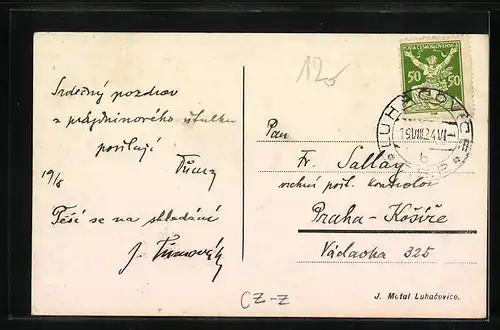 120
POŠTA ČESKOSLOVENSKÁ
50 50
LUHAČOVICE
19.VIII.24.VI
b
Srdečný pozdrav
z prázdninového útulku
posílají
19/8
Těší se na shledání
J.
Pan
Fr. Sallay
vrchní pošt. kontrolor
Praha-Košíře
325
CZ-Z
J. Motal Luhačovice.